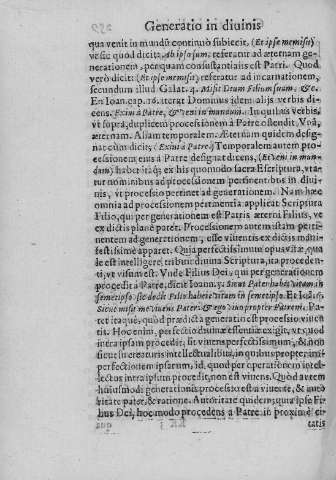 Generatio in diuinis
qua venit in mundū continuò subiecit, (Et ipse me misit)
vt sic quod dicit, Ab ipso sum, referatur ad æternam ge-
nerationem, per quam consubstantialis est Patri. Quod
verò dicit: (Et ipse me misit) referatur ad incarnationem,
secundum illud Galat. 4. Misit Deum Filium suum, &c.
En Ioan. cap. 16. iterat Dominus idem alijs verbis di-
cens. Exiui à Patre, & veni in mundum. In quibus verbis,
vt supra, duplicem processionem à Patre ostendit. Vnā,
æternam. Aliam temporalem. Æternam quidem desig-
nat cum dicit: (Exiui à Patre.) Temporalem autem pro-
cessionem eius à Patre designat dicens, (Et veni in mun-
dum) habet itaq; ex his quomodo sacra Escriptura, vta-
tur nominibus ad processionem pertinentibus in diui-
nis, vt processio pertinet ad generationem. Nam hæc
omnia ad processionem pertinentia applicat Scriptura
Filio, qui per generationem est Patris æterni Filius, vt
ex dictis planè patet. Processionem autem istam perti-
nentem ad generationem, esse viuentis ex dictis mani-
festissimè apparet. Quia perfectissimum opus vitæ, qua-
le est intelligere, tribuit diuina Scriptura, ita proceden-
ti, vt visum est. Vnde Filius Dei, qui per generationem
procedit à Patre, dicit Ioann. 5. Sicut Pater habet vitam in
semetipso: sic dedit Filio habere vitam in semetipso. Et Ioā. 6.
Sicut misit me viuens Pater: & ego viuo propter Patrem. Pa-
tet itaque, quòd prædicta generatio est processio viuen
tis. Hoc enim, perfectio diuinæ essentiæ exigit, vt quod
intra ipsum procedit, sit viuens perfectissimum, & non
sicut su creaturis intellectualibus, in quibus propter, im-
perfectionem ipsarum, id, quod per operationem intel-
lectus intra ipsum procedit, non est viuens. Quòd autem
huiusmodi generationis processio sit viuentis, & auto
ritate patet, & ratione. Autoritate quidem; quia Ipse Fi-
lius Dei, hoc modo procedens à Patre in proximè ci-
tatis